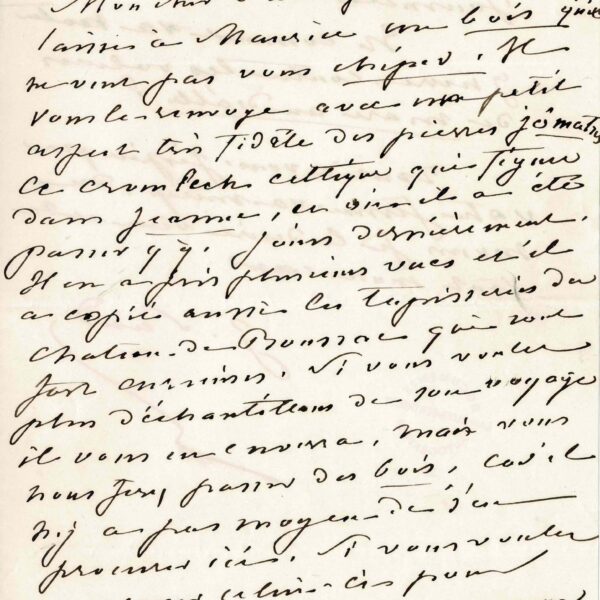 laissé à Maurice un bois qu'il
ne veut pas vous chiper. Il
vous le renvoye avec un petit
aspect très fidèle des pierres jômatres
ce cromlech celtique qui figure
dans Jeanne, et où il a été
passer qq. jours dernièrement.
Il en a pris plusieurs vues et il
a copié aussi les tapisseries du
chateau de Boussac qui sont
fort curieuses. Si vous voulez
plus d'échantillons de son voyage
il vous en enverra, mais vous
nous ferez passer des bois, car il
n'y a pas moyen de s'en
procurer ici. Si vous voulez
pour